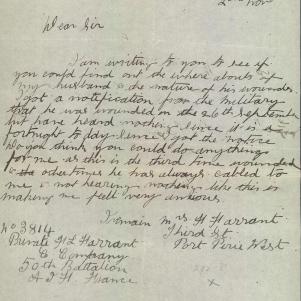 2nd Nov
Dear Sir
I am writing to you to see if
you could find out the where abouts of
my husband & the nature of his wounds.
I got a notification from the Military
that he was wounded on the 26th September
but have heard nothing since it is a
fortnight to day since I got the notice
Do you think you could do anything
for me as this is the third time wounded
other times he has always cabled to
me & not hearing nothing like this is
making me feel very anxious.
I remain Mrs H Farrant
Third St
Port Pirie West
No 3814
Private H Farrant
Company
50th Battalion
A I F France